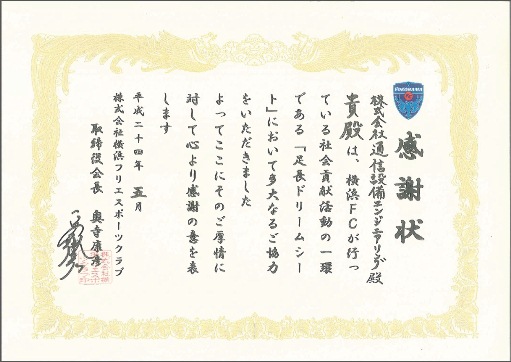 感謝状
YOKOHAMA
株式会社通信設備エンジニアリング殿
貴殿は、横浜FCが行っ
ている社会貢献活動の一環
である「足長ドリームシー
ト」において多大なるご協力
をいただきました
よってここにそのご厚情に
対して心より感謝の意を表
します
平成二十四年 五月
株式会社横浜フリエスポーツクラブ
取締役会長 奥寺康彦